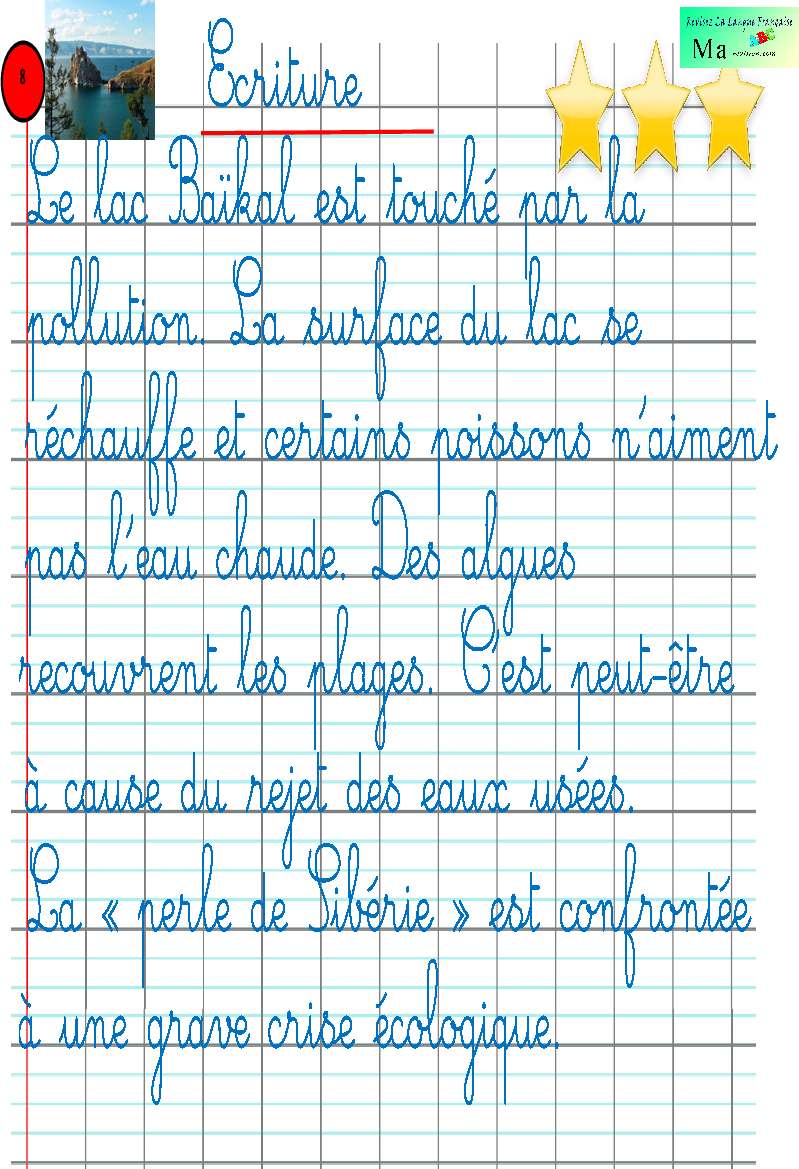 Revisez La Langue Française
8
Ecriture
Ma
ABC
maitrise.com
Le lac Baïkal est touché par la
pollution. La surface du lac se
réchauffe et certains poissons n'aiment
pas l'eau chaude. Des algues
recouvrent les plages. C'est peut-être
à cause du rejet des eaux usées.
La « perle de Sibérie » est confrontée
à une grave crise écologique.